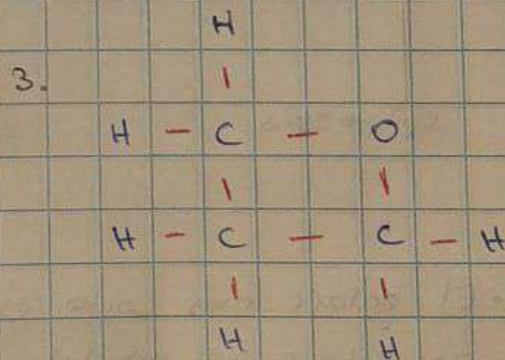 H
3. |
H – C – O
| |
H – C – C – H
| |
H H